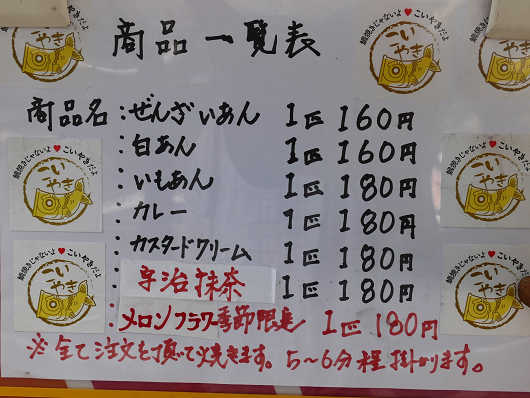 商品一覧表
商品名:ぜんざいあん 1匹 160円
:白あん 1匹 160円
:いもあん 1匹 180円
:カレー 1匹 180円
:カスタードクリーム 1匹 180円
宇治抹茶 1匹 180円
:メロンフラワー季節限定 1匹 180円
※全て注文を頂いて焼きます。5~6分程掛かります。
鯛焼きじゃないよ♥こいやきだよ
こいやき
鯛焼きじゃないよ♥こいやきだよ
こいやき
鯛焼きじゃないよ♥こいやきだよ
こいやき
鯛焼きじゃないよ♥こいやきだよ
こいやき
鯛焼きじゃないよ♥こいやきだよ
こいやき